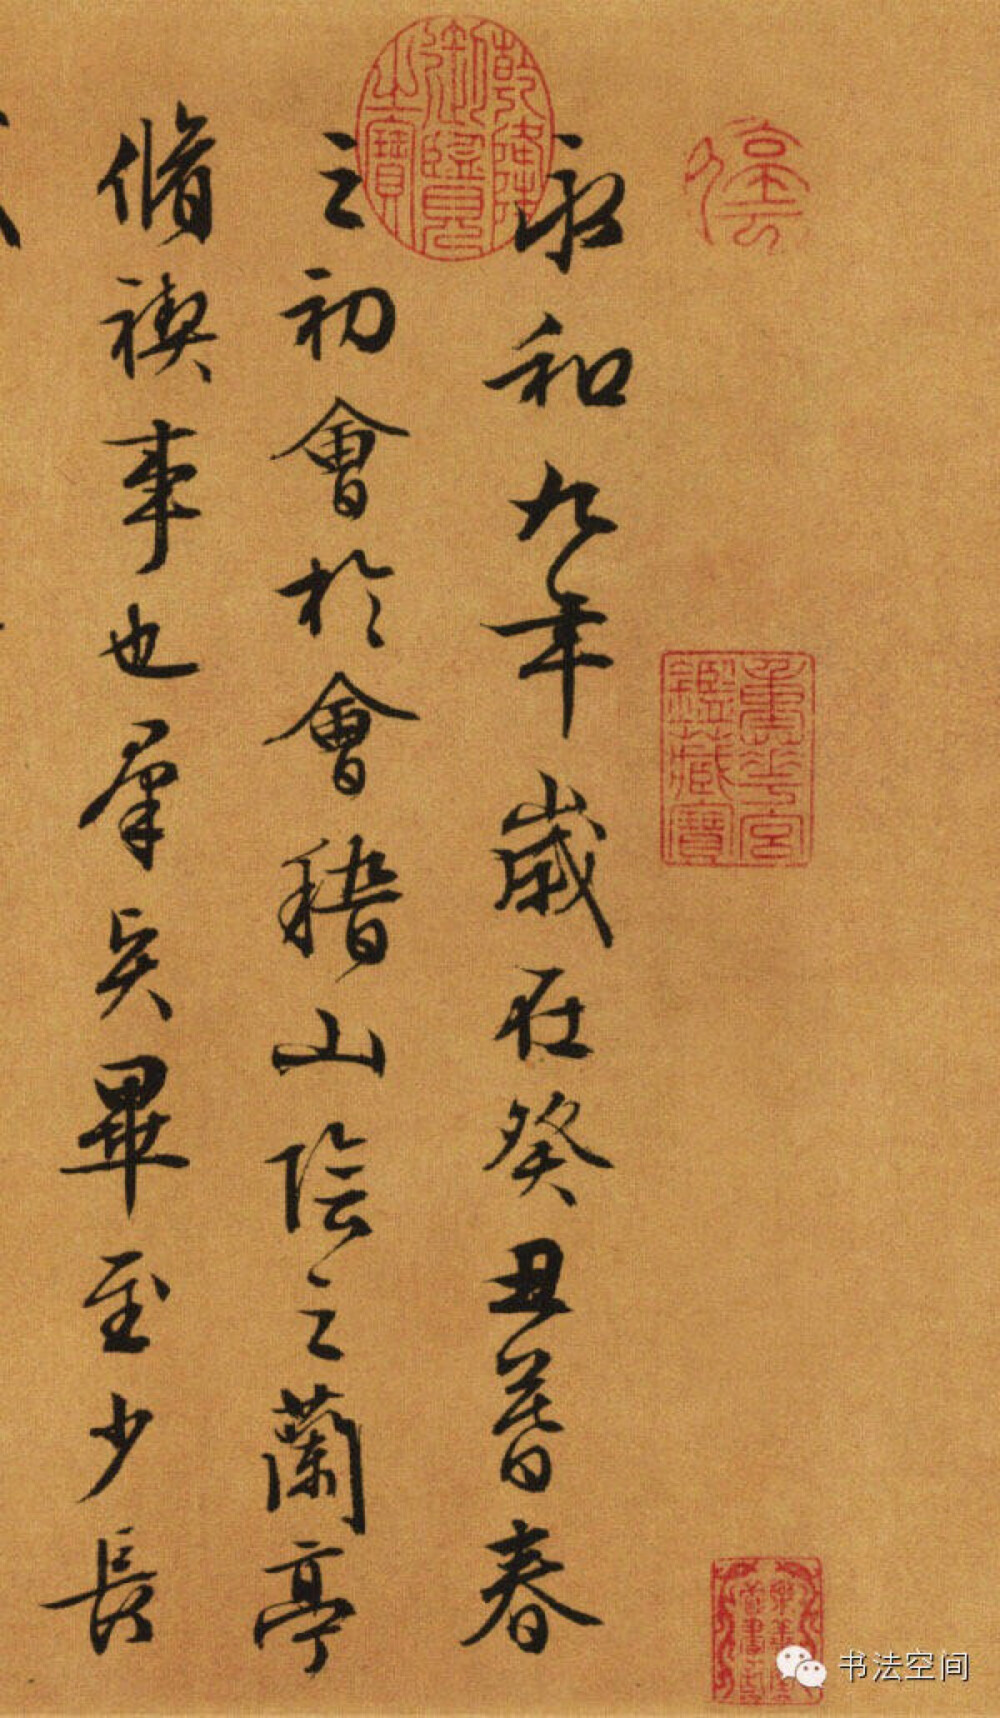 永和九年歲在癸丑暮春
之初會於會稽山陰之蘭亭
脩禊事也羣賢畢至少長
乾隆御覽之寶
重華宮鑑藏寶
书法空间